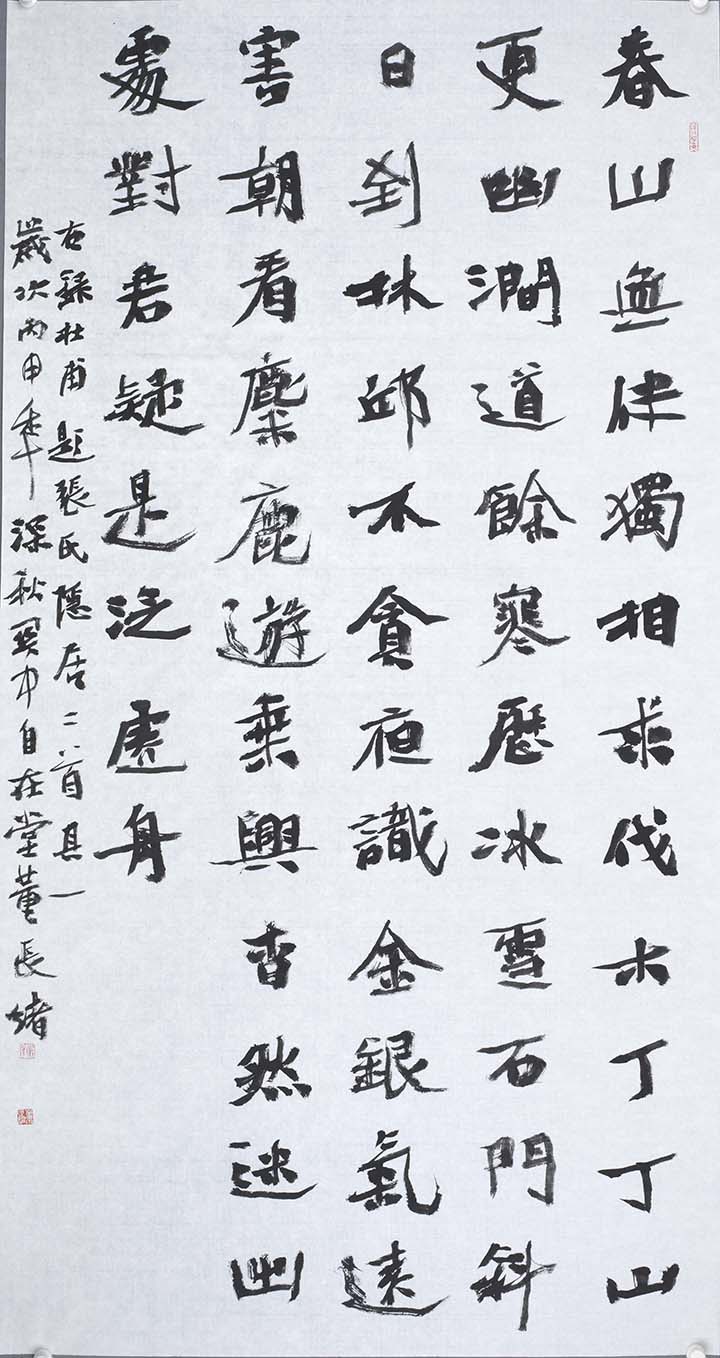 春山無伴獨相求伐木丁丁山
更幽澗道餘寒歷冰雪石門斜
日到林邱不貪夜識金銀氣遠
害朝看麋鹿遊乘興杳然迷出
處對君疑是泛虛舟
右錄杜甫題張氏隱居二首其一
歲次丙申年深秋中自在堂董長緒